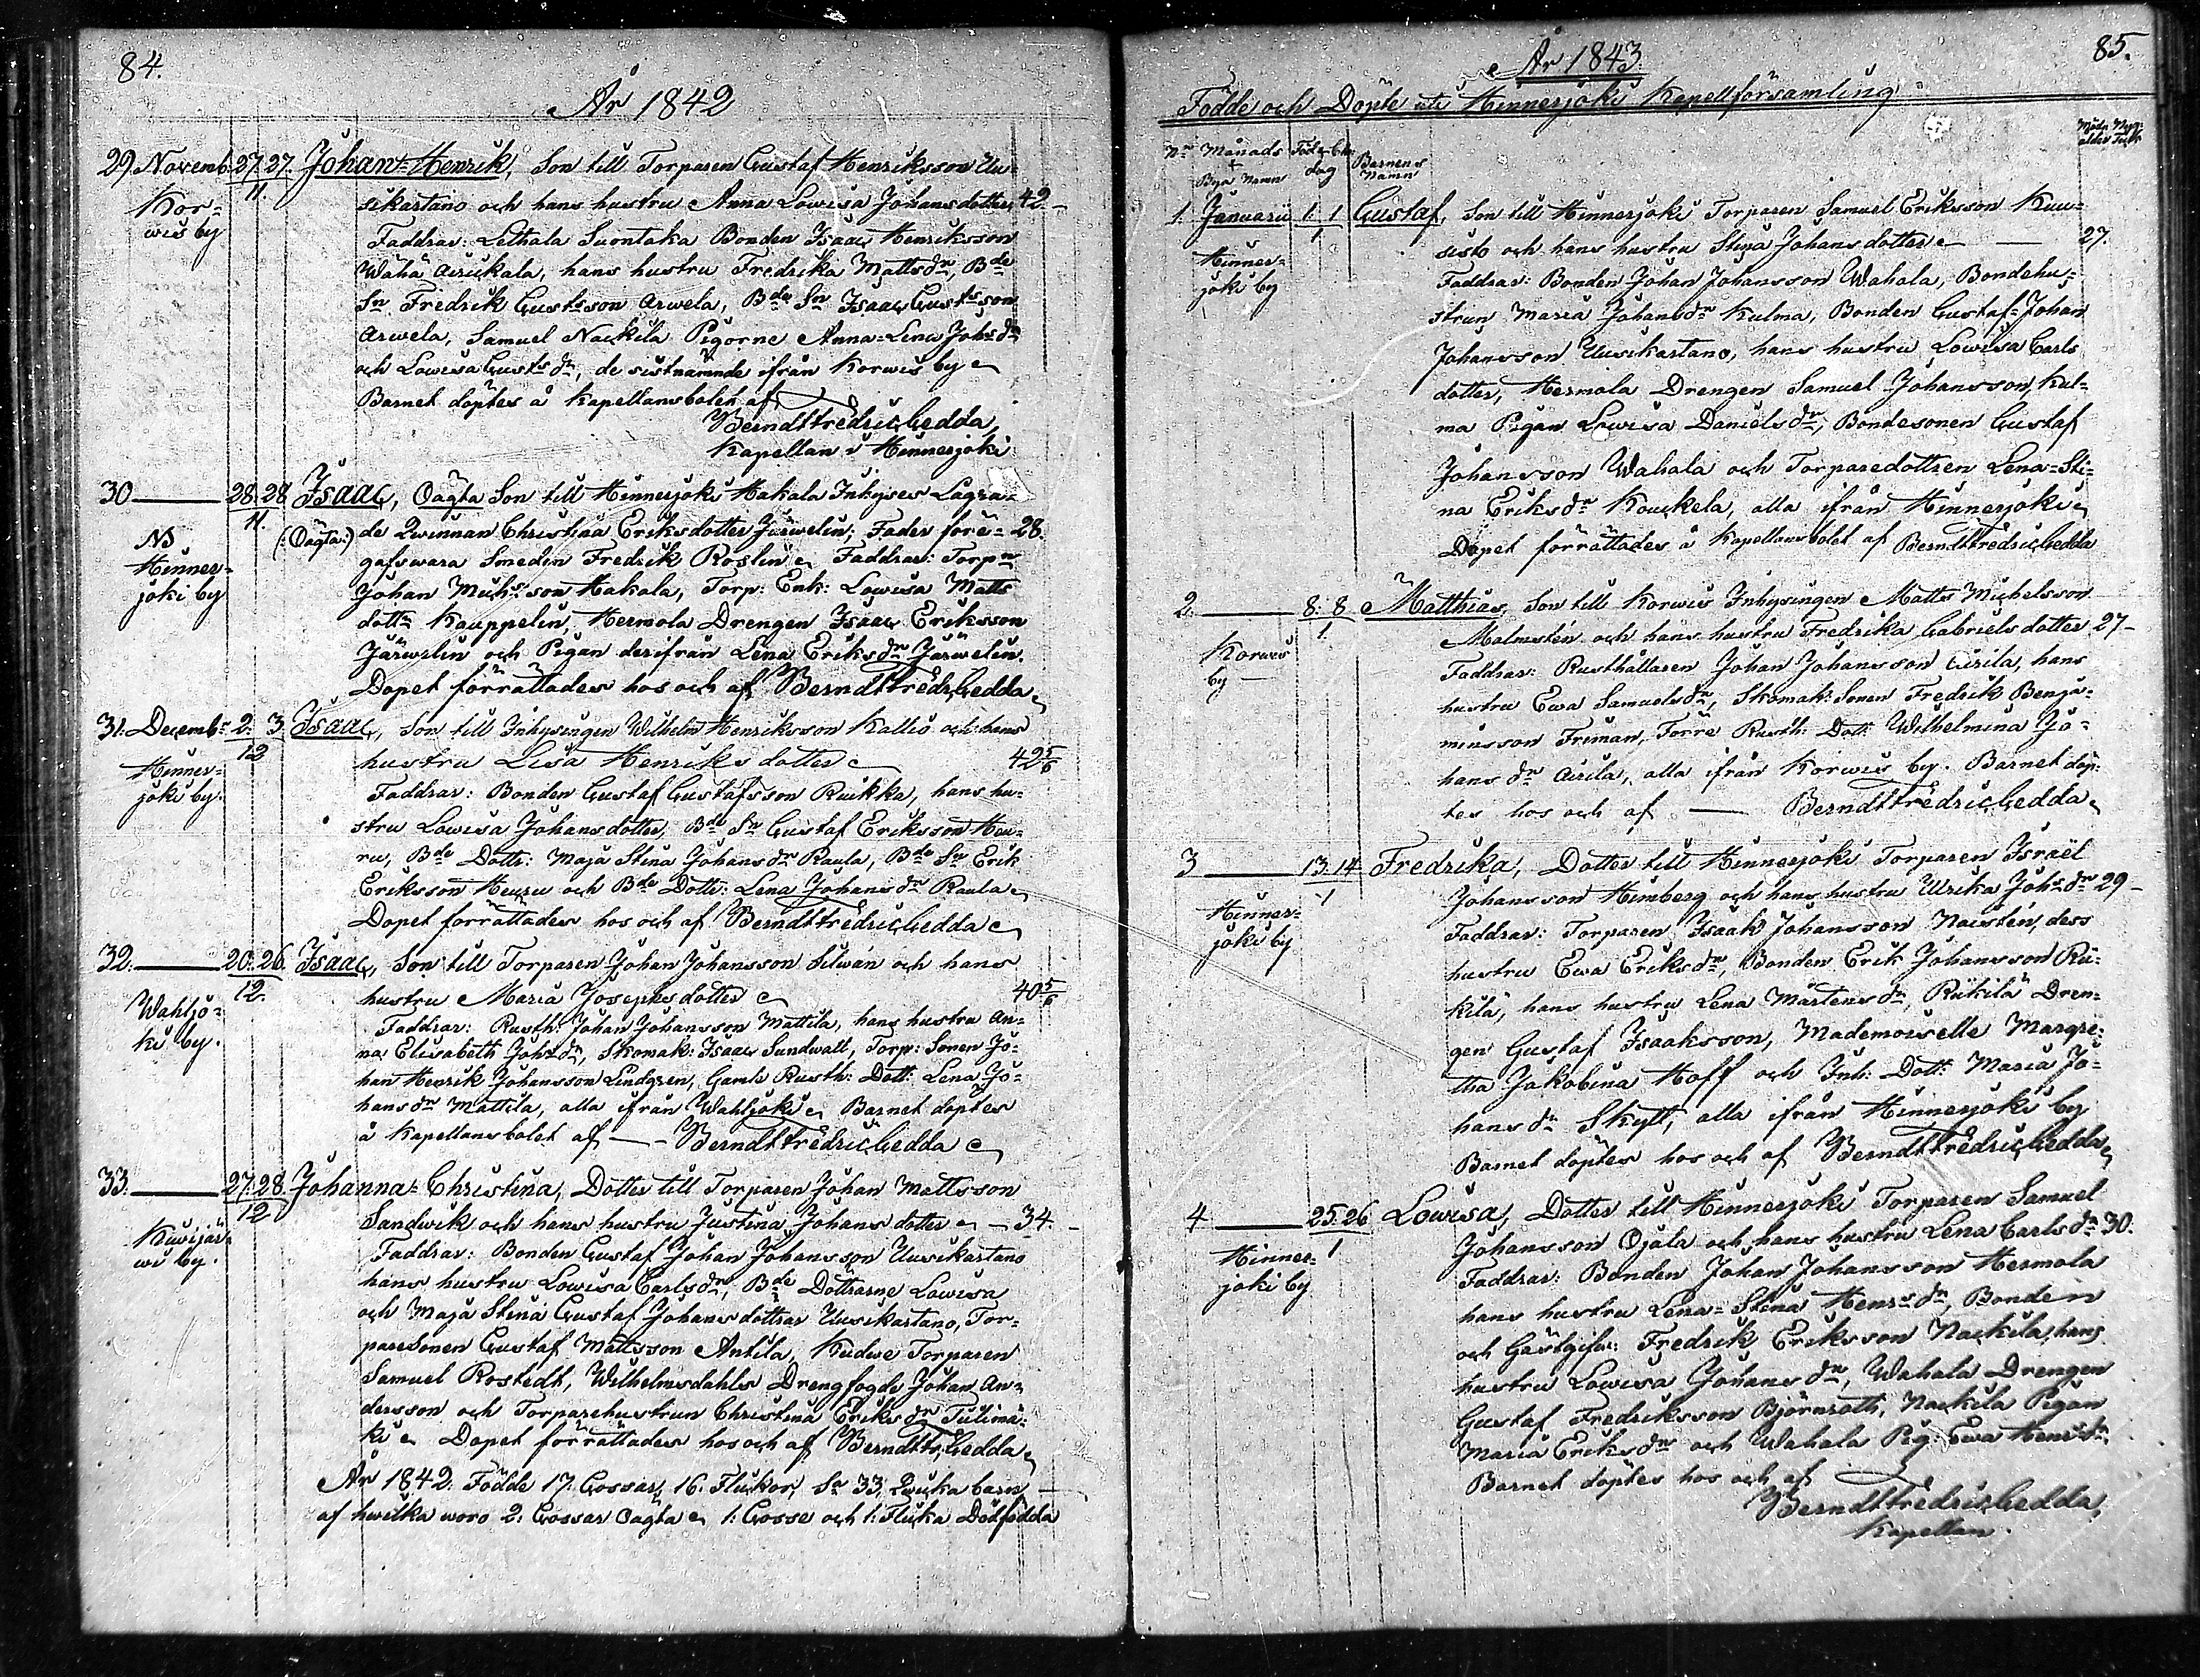 84.
År 1842
29. Novemb. 27. 27. Johan-Henrik, Son till Torparen Gustaf Henriksson Uu-
11.
Kor-
wis by
sikartano och hans hustru Anna Lowisa Johansdotter 42.
Faddrar: Lethala Suontaka Bonden Isaac Henriksson
Wähä Airikkala, hans hustru Fredrika Mattsdr, Bde
Sn Fredrik Gustsson Arwela, Bde Sn Isaac Gustsson
Arwela, Samuel Nackila Pigorne Anna-Lena Johsdr
och Lowisa Gustsdr, de sistnämnde ifrån Korwis by
Barnet döptes å Kapellansbolet af
Berndt Fredric Gedda
Kapellan i Hinnerjoki
30 — 28. 28 Isaac, Oägta Son till Hinnerjoki Hakala Inhyses Lägra-
11.
(:Oägta:)
NB
Hinner-
joki by
de Qwinnan Christina Eriksdotter Järwelin; Fader före- 28.
gafs wara Smeden Fredrik Roslin Faddrar: Torpn
Johan Michsson Hakala, Torp: Enk: Lowisa Matts
dottr Kauppelin, Hermola Drengen Isaac Eriksson
Järwelin och Pigan derifrån Lena Eriksdr Järwelin.
Dopet förrättades hos och af Berndt Fredr. Gedda
31. Decembr 2. 3. Isaac, Son till Inhysingen Wilhelm Henriksson Kallio och hans
12
Hinner-
joki by.
hustru Lisa Henriksdotter 42 5/6
Faddrar: Bonden Gustaf Gustafsson Ruikka, hans hu-
stru Lowisa Johansdotter, Bde Sn Gustaf Eriksson Heu-
ru, Bde Dottr: Maja Stina Johansdr Raula, Bde Sn Erik
Eriksson Heuru och Bde Dottr: Lena Johansdr Raula
Dopet förrättades hos och af Berndt Fredric Gedda
32. — 20. 26. Isaac, Son till Torparen Johan Johansson Silwán och hans
12.
Wahljo-
ki by.
hustru Maria Josephsdotter 40 5/6
Faddrar: Rusth: Johan Johansson Mattila, hans hustru An-
na Elisabeth Johsdr, Skomak: Isaac Sundwall, Torp: Sonen Jo-
han Henrik Johansson Lindgren, Gamle Rusth: Dott: Lena Jo-
hansdr Mattila, alla ifrån Wahljoki Barnet döptes
å Kapellansbolet af — Berndt Fredric Gedda
33. — 27. 28. Johanna-Christina, Dotter till Torparen Johan Mattsson
12
Kuwijär-
wi by.
Sandwik och hans hustru Justina Johansdotter — 34.
Faddrar: Bonden Gustaf Johan Johansson Uusikartano
hans hustru Lowisa Carlsdr, Bde Döttrarne Lowisa
och Maja Stina Gustaf Johansdöttrar Uusikartano, Tor-
paresonen Gustaf Mattsson Antila, Kudwe Torparen
Samuel Rostedt, Wilhelmsdahls Drengfogde Johan An-
dersson och Torparehustrun Christina Eriksdr Tulimä-
ki Dopet förrättades hos och af Berndt Fr. Gedda
År 1842. Födde 17. Gossar, 16. Flickor, Sa 33. Qwicka barn
af hwilka woro 2: Gossar Oägta 1: Gosse och 1: Flicka Dödfödda
85.
År 1843.
Födde och Döpte uti Hinnerjoki Kapellförsamling
Nr Månads + Bya Namn
Föd. Chr. dag
Barnens Namn
1. Januarii 1. 1 Gustaf, Son till Hinnerjoki Torparen Samuel Eriksson Kuu-
1
Hinner-
joki by
sisto och hans hustru Stina Johansdotter — 27.
Faddrar: Bonden Johan Johansson Wahala, Bondehu-
strun Maria Johansdr Kulma, Bonden Gustaf-Johan
Johansson Uusikartano, hans hustru Lowisa Carls
dotter, Hermola Drengen Samuel Johansson, Kul-
ma Pigan Lowisa Danielsdr, Bondesonen Gustaf
Johansson Wahala och Torparedottren Lena-Sti-
na Eriksdr Kouckela, alla ifrån Hinnerjoki
Dopet förrättades å Kapellansbolet af Berndt Fredric Gedda
2. — 8. 8 Matthias, Son till Korwis Inhysingen Matts Michelsson
1
Korwis
by
Malmstén och hans hustru Fredrika Gabrielsdotter 27
Faddrar: Rusthållaren Johan Johansson Airila, hans
hustru Ewa Samuelsdr, Skomak: Sonen Fredrik Benja-
minsson Friman, Förre Rusth: Dott: Wilhelmina Jo-
hansdr Airila, alla ifrån Korwis by. Barnet döp-
tes hos och af — Berndt Fredric Gedda
3 — 13. 14 Fredrika, Dotter till Hinnerjoki Torparen Israël
1
Hinner-
joki by
Johansson Himberg och hans hustru Ulrika Johsdr 29
Faddrar: Torparen Isaak Johansson Naistén, dess
hustru Ewa Eriksdr, Bonden Erik Johansson Rii-
kilä, hans hustru Lena Mårtensdr, Riikilä Dren-
gen Gustaf Isaaksson, Mademoiselle Margre-
tha Jakobina Hoff och Inh: Dott: Maria Jo-
hansdr Skytt, alla ifrån Hinnerjoki by
Barnet döptes hos och af Berndt Fredric Gedda
4. — 25. 26 Lowisa, Dotter till Hinnerjoki Torparen Samuel
1
Hinner-
joki by
Johansson Ojala och hans hustru Lena Carlsdr 30.
Faddrar: Bonden Johan Johansson Hermola
hans hustru Lena-Stina Henrsdr, Bonden
och Gästgifv: Fredrik Eriksson Nackila, hans
hustru Lowisa Johansdr, Wahala Drengen
Gustaf Fredriksson Björnroth, Nackila Pigan
Maria Eriksdr och Wahala Pig: Ewa Henrsdr
Barnet döptes hos och af
Berndt Fredric Gedda,
Kapellan.